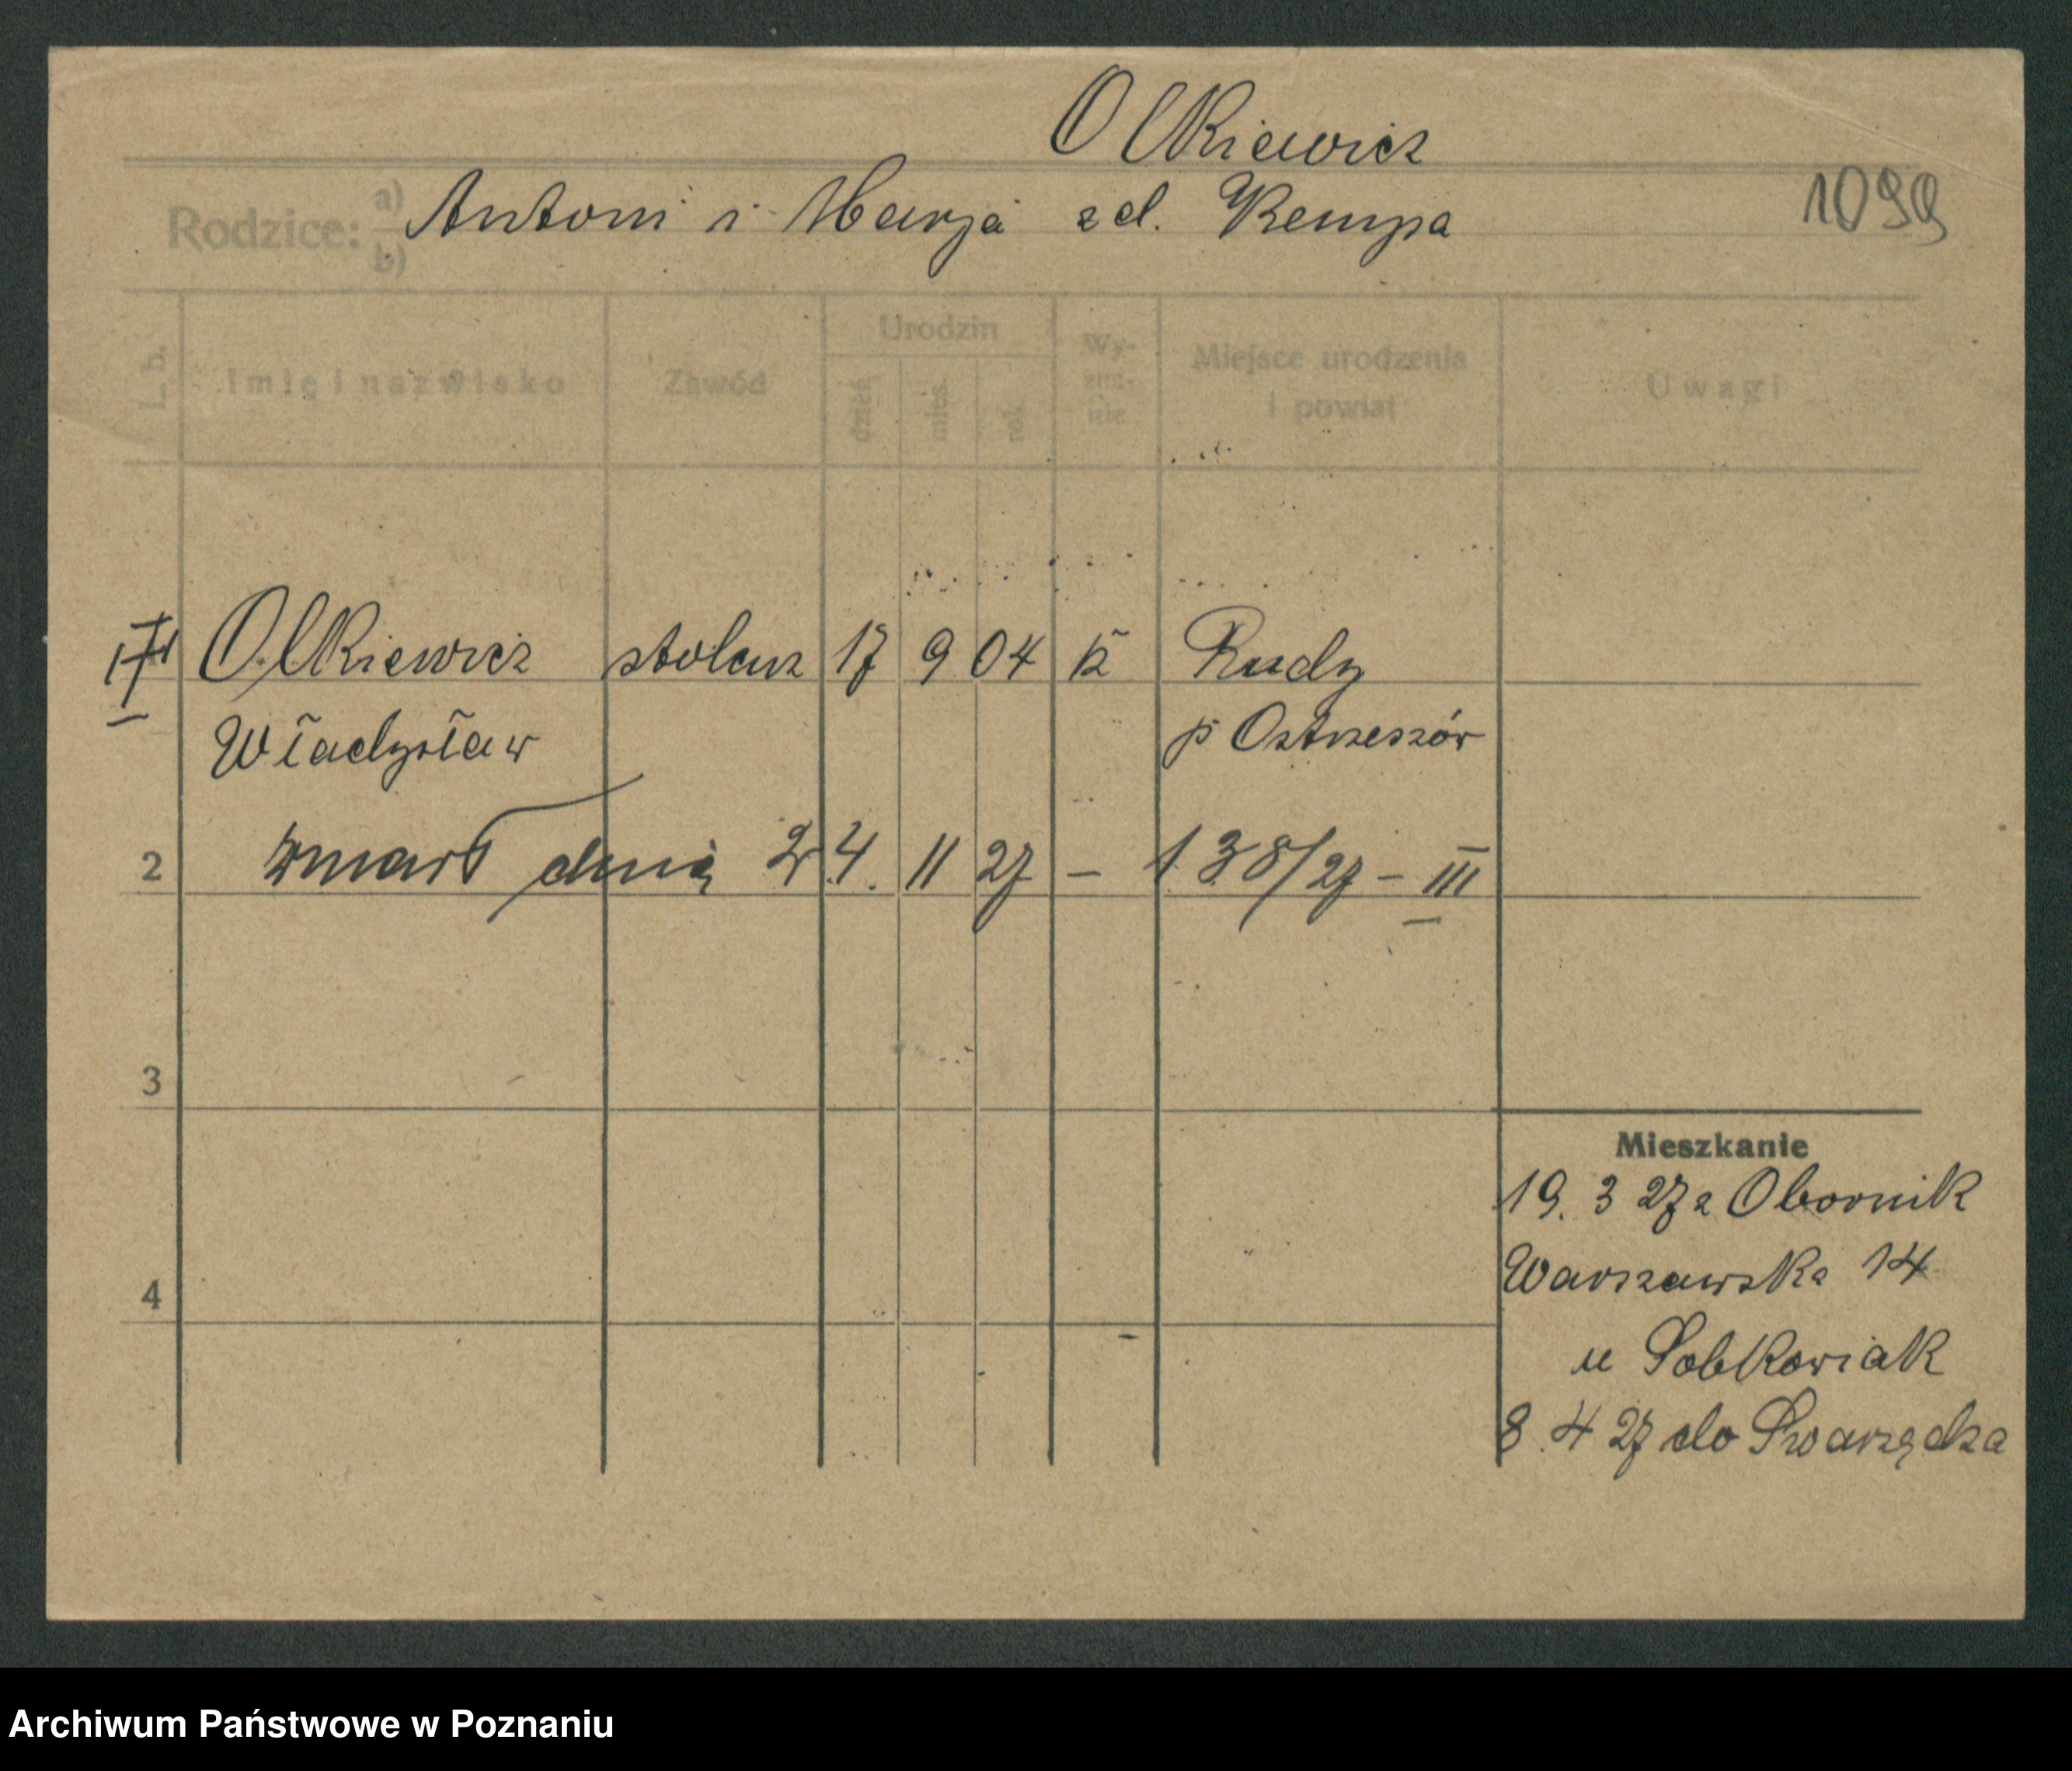 Olkiewicz
Rodzice: a) b) Antoni i Marja zd. Kempa
1099
L. b. Imię i nazwisko Zawód Urodzin dzień mies. rok Wy-zna-nie Miejsce urodzenia i powiat Uwagi
Olkiewicz stolarz 17 9 04 k Rudy
Władysław p Ostrzeszów
2 zmarł dnia 24. 11 27 – 138/27 – III
3
Mieszkanie
19. 3 27 z Obornik
Warszawska 14
4
u Sobkowiak
8. 4 27 do Swarzędza
Archiwum Państwowe w Poznaniu